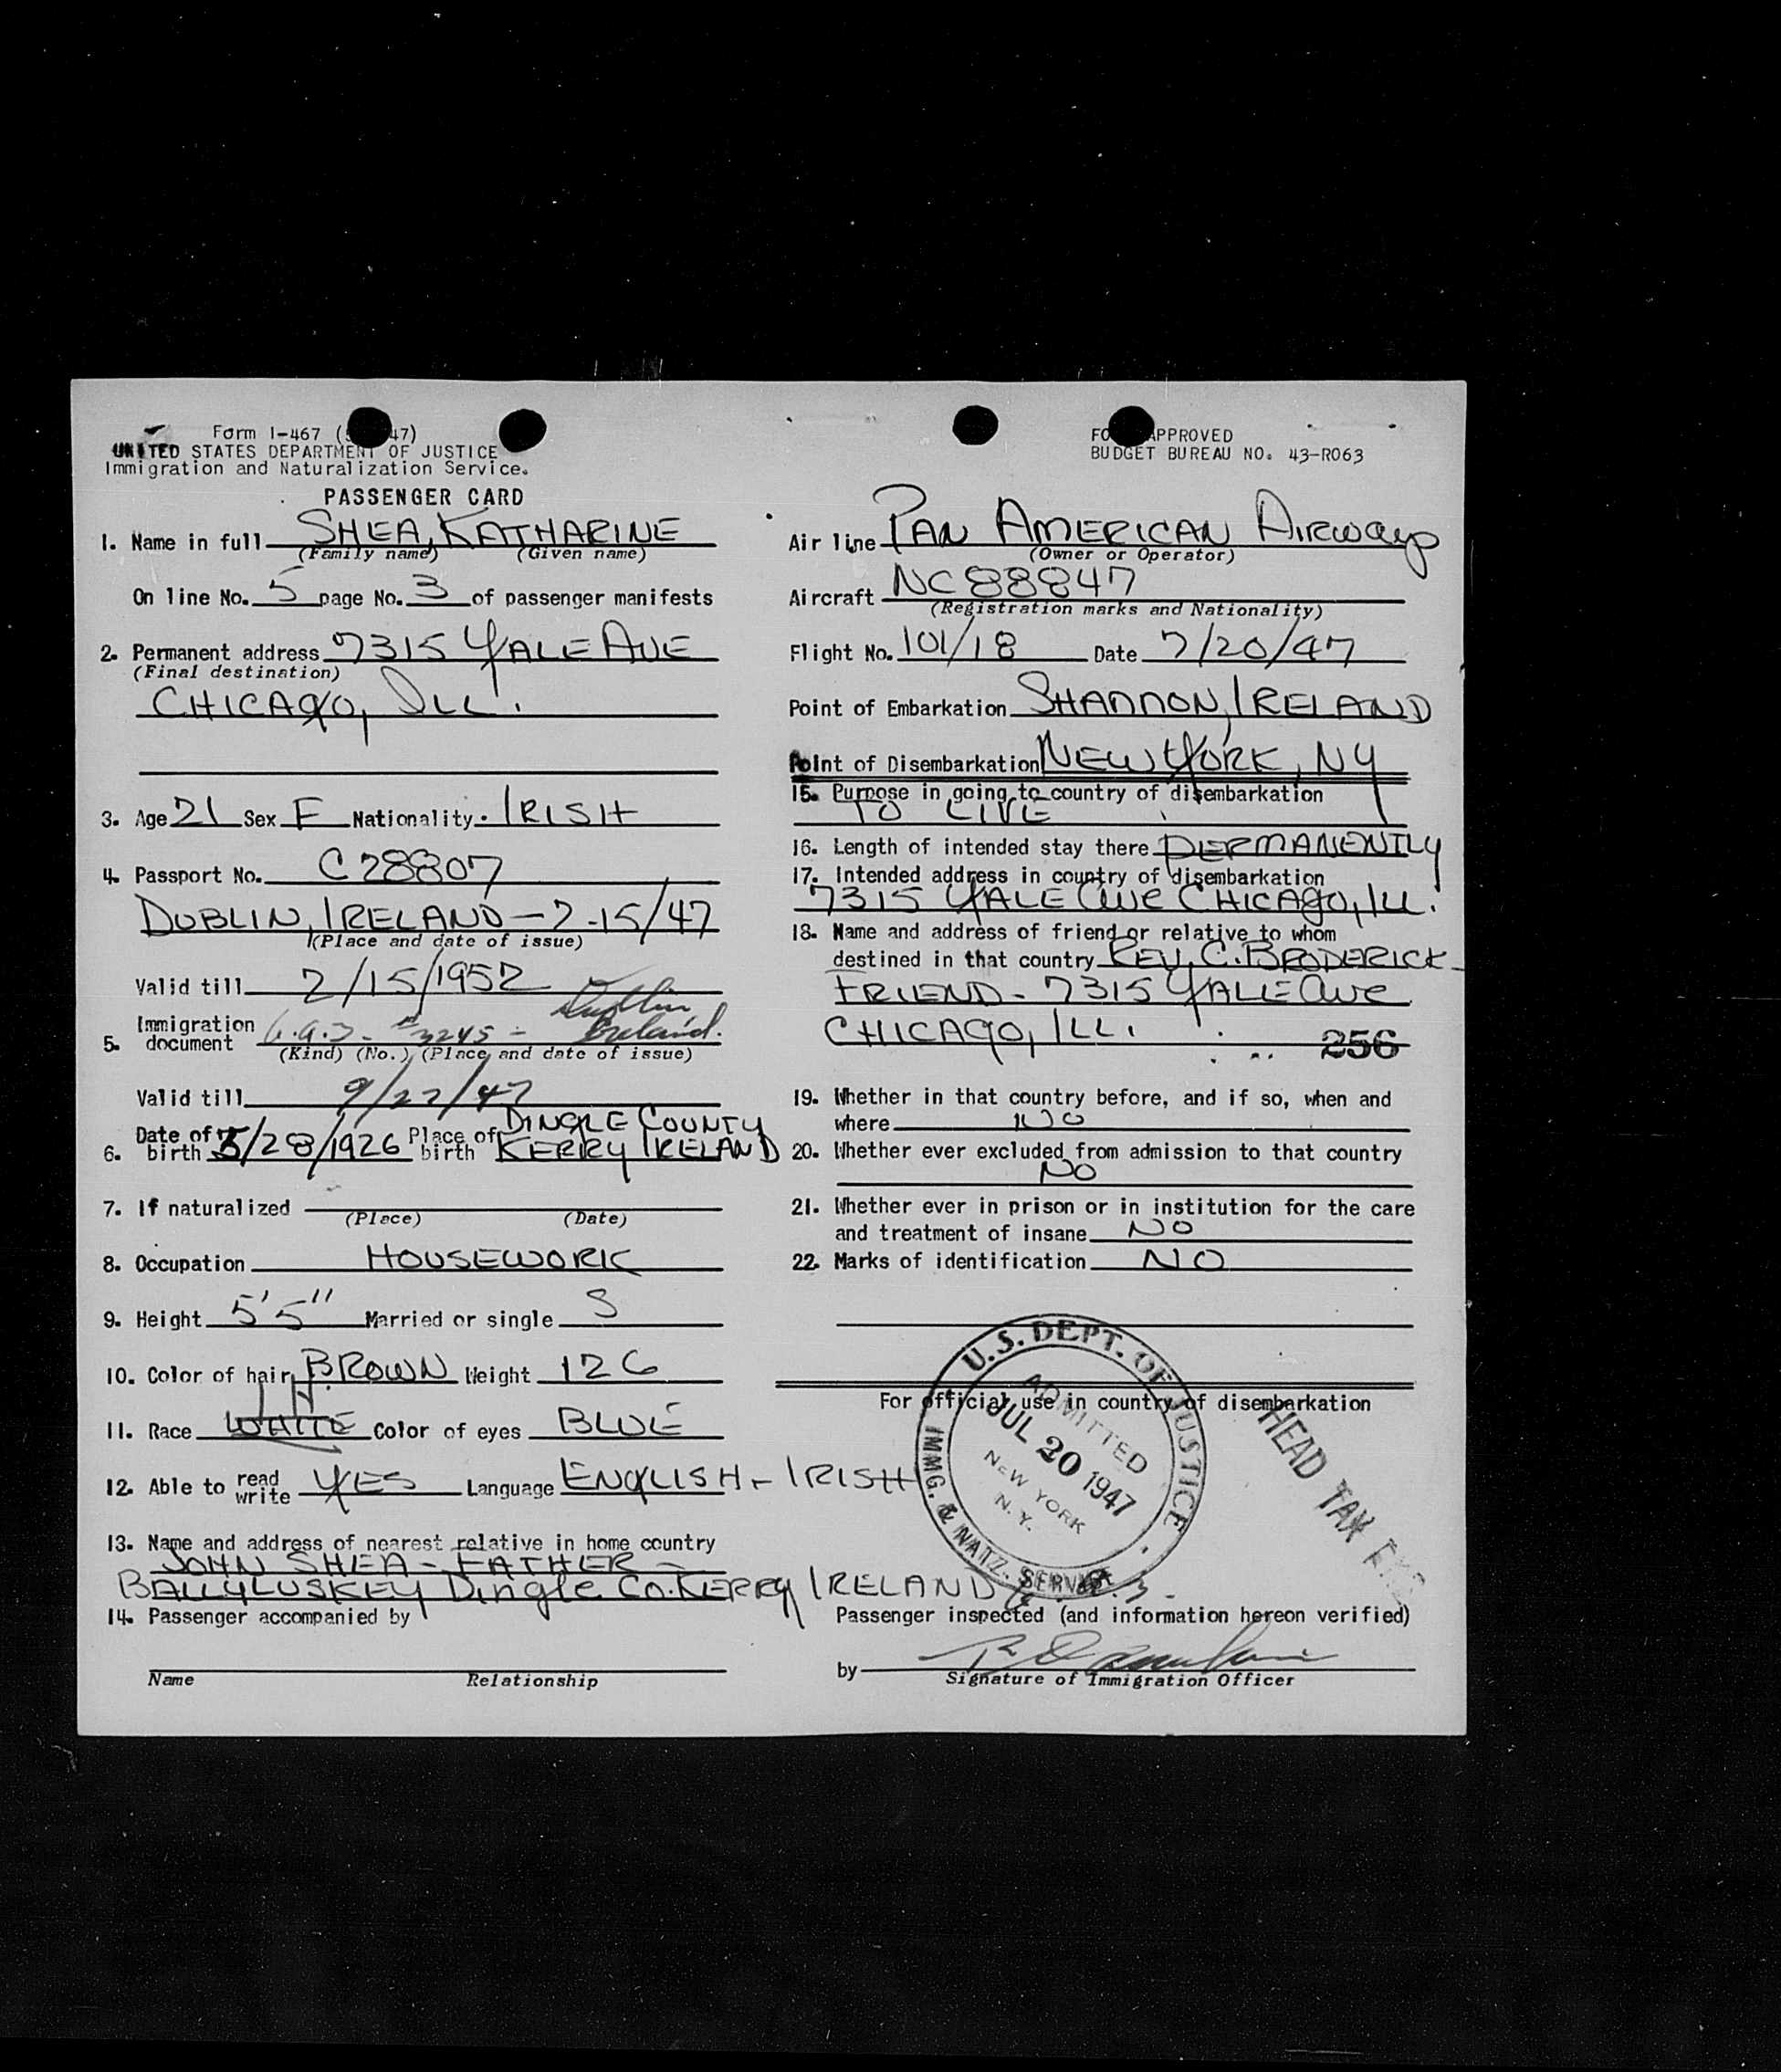 Form I-467 ( 47)
UNITED STATES DEPARTMENT OF JUSTICE
Immigration and Naturalization Service.
PASSENGER CARD
1. Name in full SHEA, KATHARINE
(Family name) (Given name)
On line No. 5 page No. 3 of passenger manifests
2. Permanent address 7315 YALE AVE
(Final destination)
CHICAGO, ILL.
3. Age 21 Sex F Nationality. IRISH
4. Passport No. C28807
DUBLIN, IRELAND - 2-15/47
(Place and date of issue)
Valid till 2/15/1952
5. Immigration document #3245 - Dublin, Ireland.
(Kind) (No.) (Place and date of issue)
Valid till 9/27/47
6. Date of birth 5/28/1926 Place of birth DINGLE COUNTY
KERRY IRELAND
7. If naturalized
(Place) (Date)
8. Occupation HOUSEWORK
9. Height 5'5" Married or single S
10. Color of hair BROWN Weight 126
11. Race WHITE Color of eyes BLUE
12. Able to read write YES Language ENGLISH - IRISH
13. Name and address of nearest relative in home country
JOHN SHEA - FATHER -
BALLYLUSKEY Dingle Co. KERRY IRELAND
14. Passenger accompanied by
Name Relationship
FO APPROVED
BUDGET BUREAU NO. 43-R063
Air line PAN AMERICAN AIRways
(Owner or Operator)
Aircraft NC88847
(Registration marks and Nationality)
Flight No. 101/18 Date 7/20/47
Point of Embarkation SHANNON, IRELAND
Point of Disembarkation NEW YORK, NY
15. Purpose in going to country of disembarkation
TO LIVE
16. Length of intended stay there PERMANENTLY
17. Intended address in country of disembarkation
7315 YALE Ave CHICAgO, ILL.
18. Name and address of friend or relative to whom
destined in that country REV. C. BRODERICK -
FRIEND - 7315 YALE Ave
CHICAGO, ILL.
256
19. Whether in that country before, and if so, when and
where NO
20. Whether ever excluded from admission to that country
NO
21. Whether ever in prison or in institution for the care
and treatment of insane NO
22. Marks of identification NO
For official use in country of disembarkation
U.S. DEPT. OF JUSTICE
ADMITTED
JUL 20 1947
NEW YORK
N.Y.
IMMG. & NATZ. SERVICE
HEAD TAX
Passenger inspected (and information hereon verified)
by
Signature of Immigration Officer